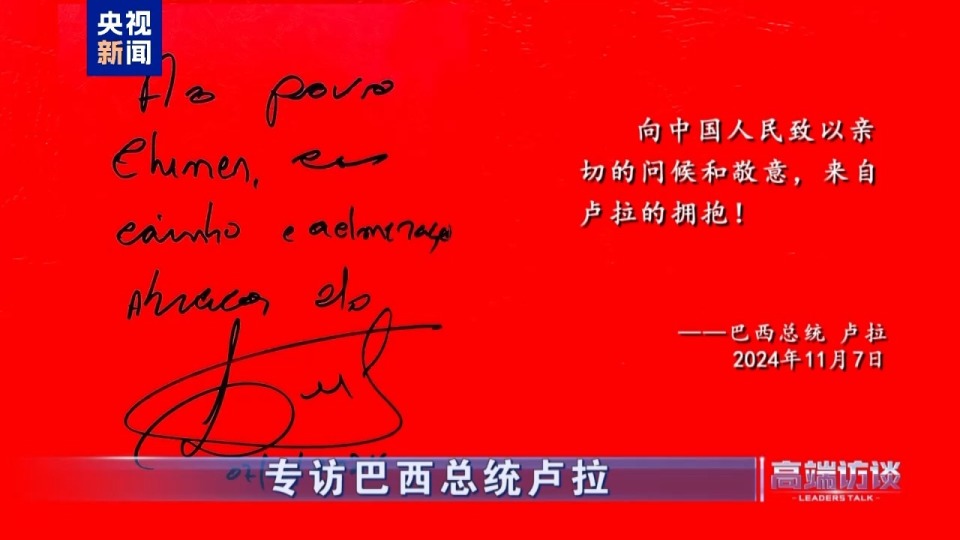 央视
新闻
Ao povo
Chines, com
carinho e admiração
Abraços do
Lula
向中国人民致以亲
切的问候和敬意，来自
卢拉的拥抱！
——巴西总统 卢拉
2024年11月7日
专访巴西总统卢拉
高端访谈
LEADERS TALK